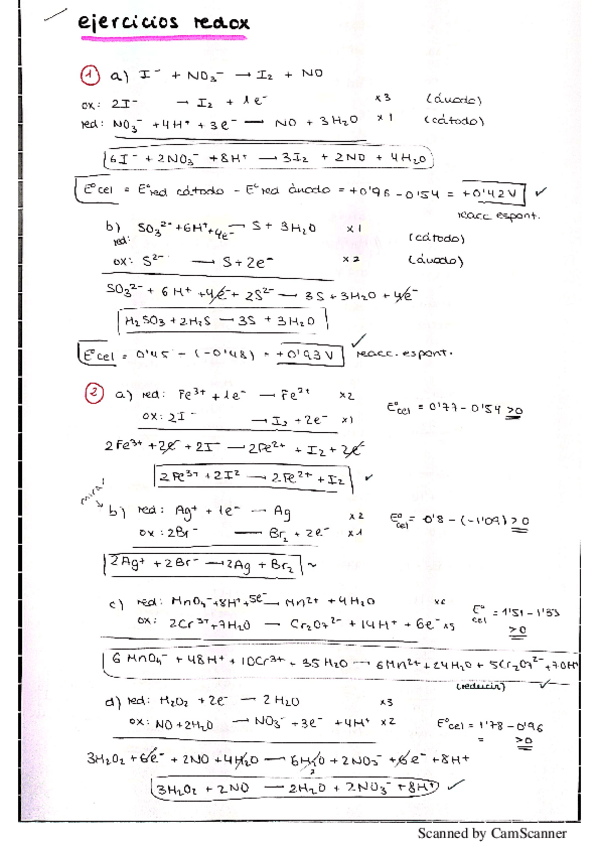 ejercicios redox
1 a) I⁻ + NO₃⁻ → I₂ + NO
ox: 2I⁻ → I₂ + 1e⁻ x3 (ánodo)
red: NO₃⁻ + 4H⁺ + 3e⁻ → NO + 3H₂O x1 (cátodo)
6I⁻ + 2NO₃⁻ + 8H⁺ → 3I₂ + 2NO + 4H₂O
E°cel = E°red cátodo - E°red ánodo = +0'96 - 0'54 = +0'42 V ✓
reacc espont.
b) SO₃²⁻ + 6H⁺ + 4e⁻ → S + 3H₂O x1
red: (cátodo)
ox: S²⁻ → S + 2e⁻ x2 (ánodo)
SO₃²⁻ + 6H⁺ + 4e⁻ + 2S²⁻ → 3S + 3H₂O + 4e⁻
H₂SO₃ + 2H₂S → 3S + 3H₂O
E°cel = 0'45 - (-0'48) = +0'93 V ✓ reacc. espont.
2 a) red: Fe³⁺ + 1e⁻ → Fe²⁺ x2
ox: 2I⁻ → I₂ + 2e⁻ x1 E°cel = 0'77 - 0'54 >0
2Fe³⁺ + 2e⁻ + 2I⁻ → 2Fe²⁺ + I₂ + 2e⁻
2Fe³⁺ + 2I² → 2Fe²⁺ + I₂ ✓
mirar
b) red: Ag⁺ + 1e⁻ → Ag x2 E°cel = 0'8 - (-1'09) >0
ox: 2Br⁻ → Br₂ + 2e⁻ x1
2Ag⁺ + 2Br⁻ → 2Ag + Br₂ ~
c) red: MnO₄⁻ + 8H⁺ + 5e⁻ → Mn²⁺ + 4H₂O x6 E°cel = 1'51 - 1'33 >0
ox: 2Cr³⁺ + 7H₂O → Cr₂O₇²⁻ + 14H⁺ + 6e⁻ x5
6MnO₄⁻ + 48H⁺ + 10Cr³⁺ + 35H₂O → 6Mn²⁺ + 24H₂O + 5Cr₂O₇²⁻ + 70H⁺
(reducir) ✓
d) red: H₂O₂ + 2e⁻ → 2H₂O x3
ox: NO + 2H₂O → NO₃⁻ + 3e⁻ + 4H⁺ x2 E°cel = 1'78 - 0'96 = >0
3H₂O₂ + 6e⁻ + 2NO + 4H₂O → 6H₂O + 2NO₃⁻ + 6e⁻ + 8H⁺
2
3H₂O₂ + 2NO → 2H₂O + 2NO₃⁻ + 8H⁺ ✓
Scanned by CamScanner